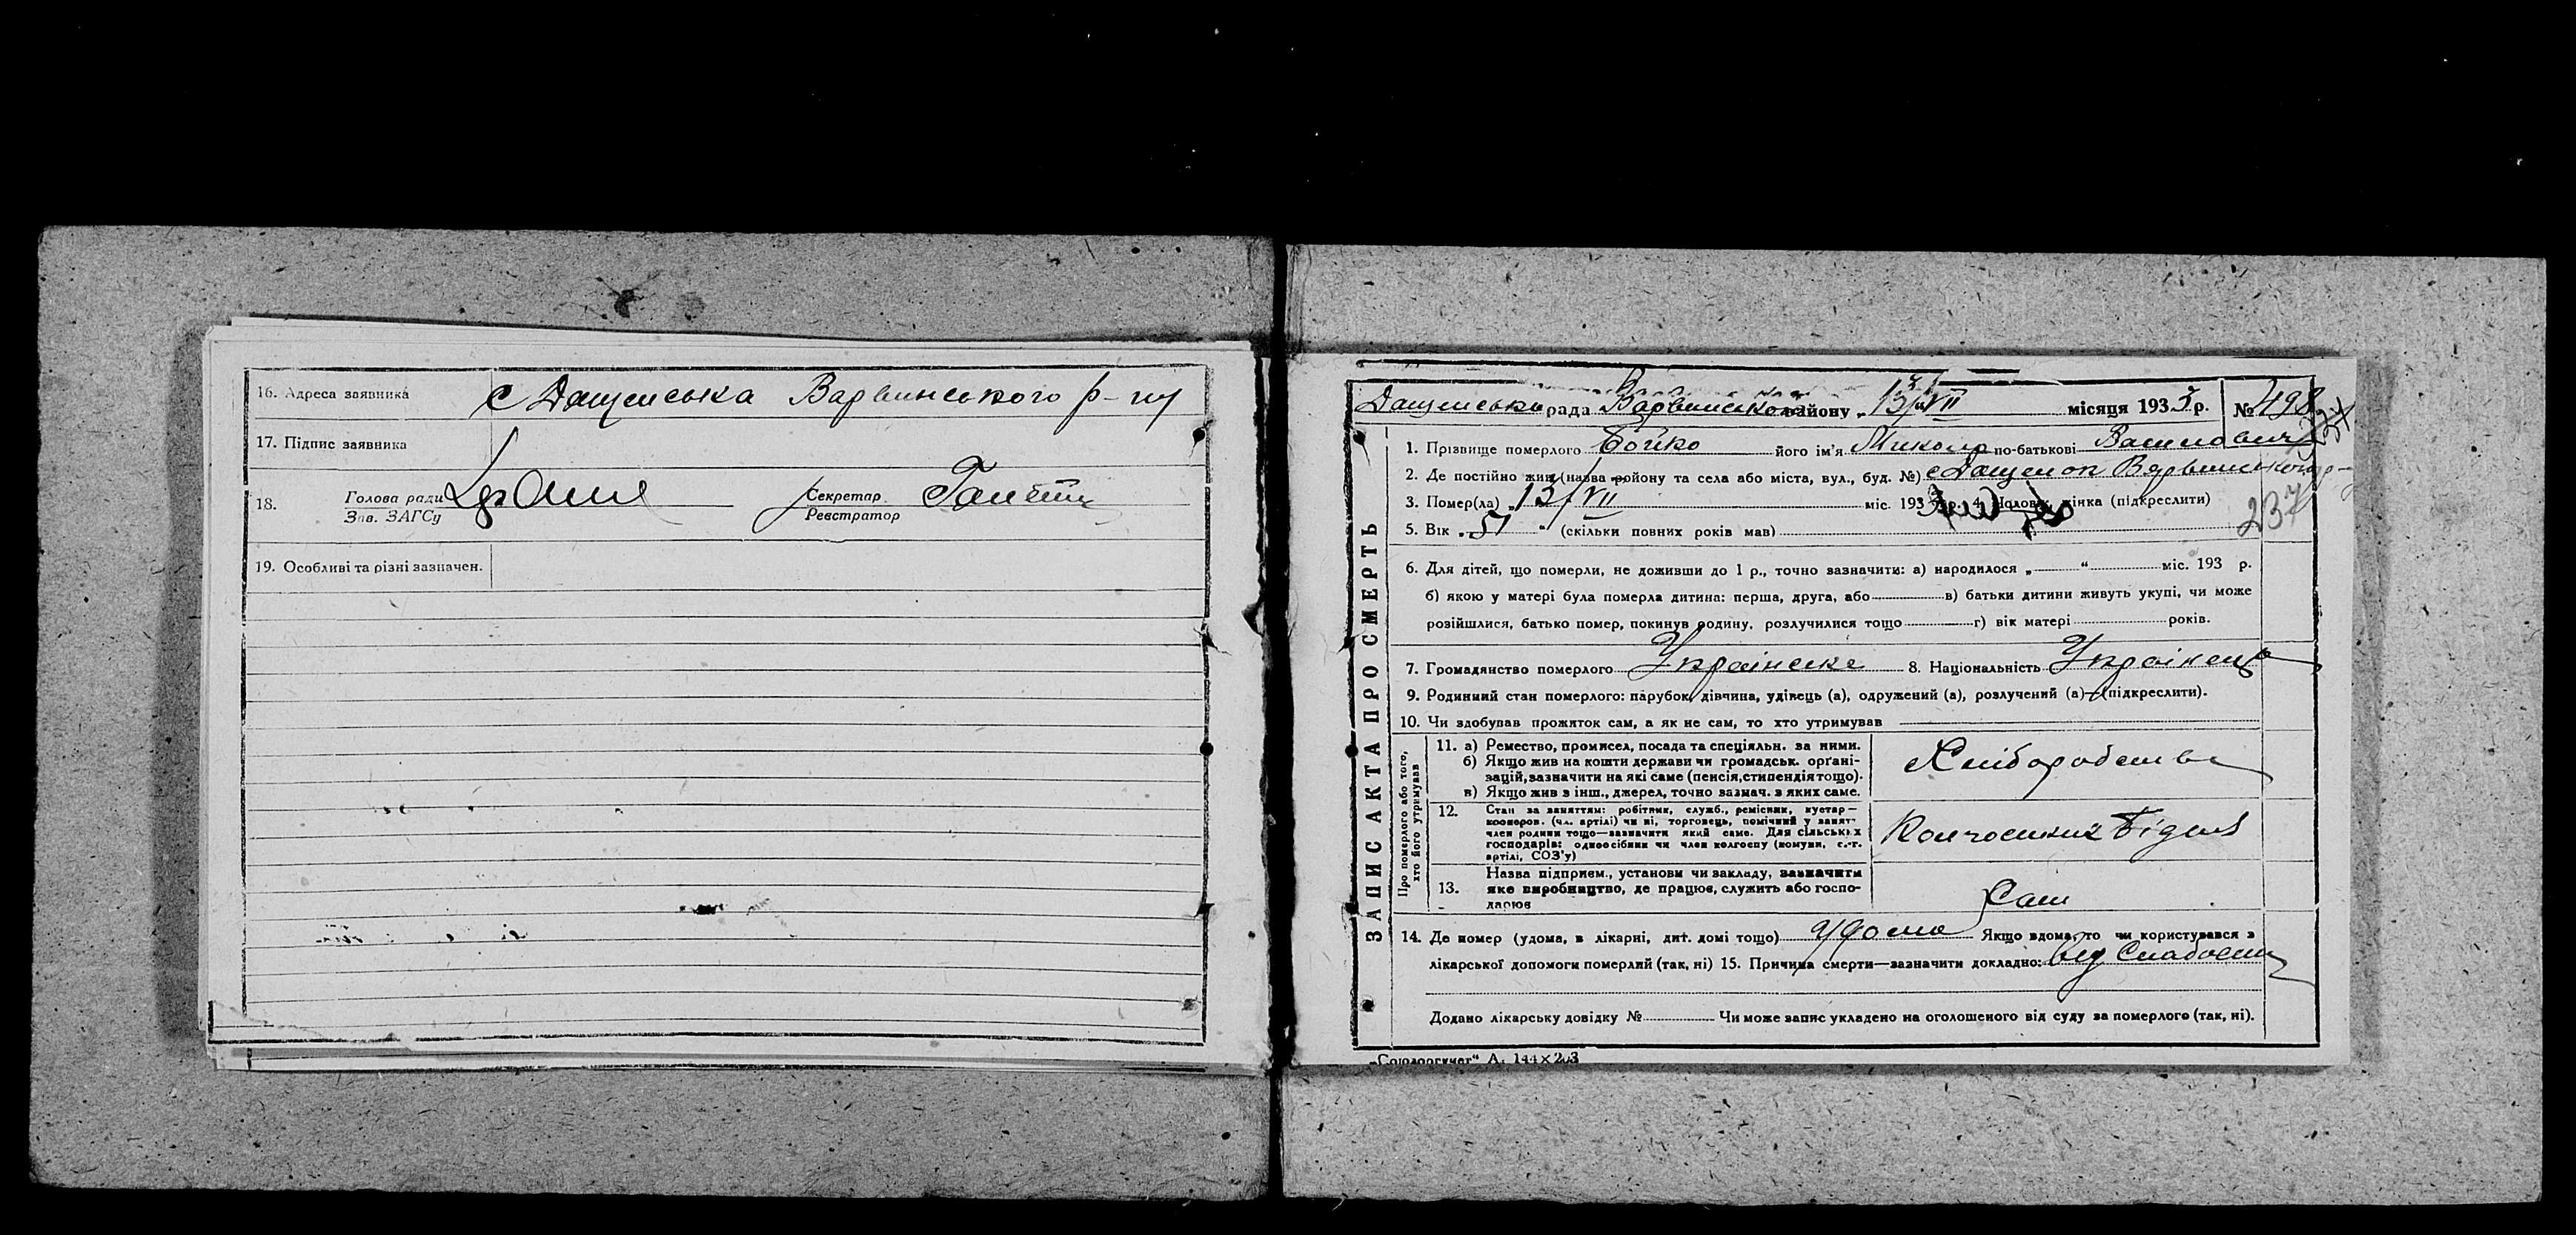 16. Адреса заявника с Дащенська Варвинського р-ну
17. Підпис заявника
18. Голова ради Секретар
Зав. ЗАГСу Реєстратор
19. Особливі та різні зазначен.
ЗАПИС АКТА ПРО СМЕРТЬ
Дащенська рада Варвинського району „13/VII місяця 1933 р. № 498
1. Прізвище померлого Бойко його ім'я Микола по-батькові Васильович
2. Де постійно жив (назва району та села або міста, вул., буд. №) с Дащенок Варвинського р-
3. Помер(ла) „13/VII міс. 193 р. 4. Чоловік, жінка (підкреслити)
237
5. Вік „51" (скільки повних років мав)
6. Для дітей, що померли, не доживши до 1 р., точно зазначити: а) народилося „ “ міс. 193 р.
б) якою у матері була померла дитина: перша, друга, або в) батьки дитини живуть укупі, чи може
розійшлися, батько помер, покинув родину, розлучилися тощо г) вік матері років.
7. Громадянство померлого Українське 8. Національність Українець
9. Родинний стан померлого: парубок, дівчина, удівець (а), одружений (а), розлучений (а)—(підкреслити).
10. Чи здобував прожиток сам, а як не сам, то хто утримував
Про померлого або того, хто його утримував
11. а) Ремество, промисел, посада та спеціяльн. за ними.
б) Якщо жив на кошти держави чи громадськ. орґані-
зацій, зазначити на які саме (пенсія, стипендія тощо).
в) Якщо жив з інш., джерел, точно зазнач. з яких саме.
Хліборобство
12. Стан за заняттям: робітник, служб., ремісник, кустар—
кооперов. (чл. артілі) чи ні, торговець, помічний у занят-
член родини тощо—зазначити який саме. Для сільських
господарів: одноосібник чи член колгоспу (комуни, с.-г.
артілі, СОЗ'у)
Колгоспник Бідняк
13. Назва підприєм., установи чи закладу, зазначити
яке виробництво, де працює, служить або госпо-
дарює
Сам
14. Де помер (удома, в лікарні, дит. домі тощо) удома Якщо вдома, то чи користувався з
лікарської допомоги померлий (так, ні) 15. Причина смерти—зазначити докладно: від Слабости
Додано лікарську довідку № Чи може запис укладено на оголошеного від суду за померлого (так, ні).
А. 144×203